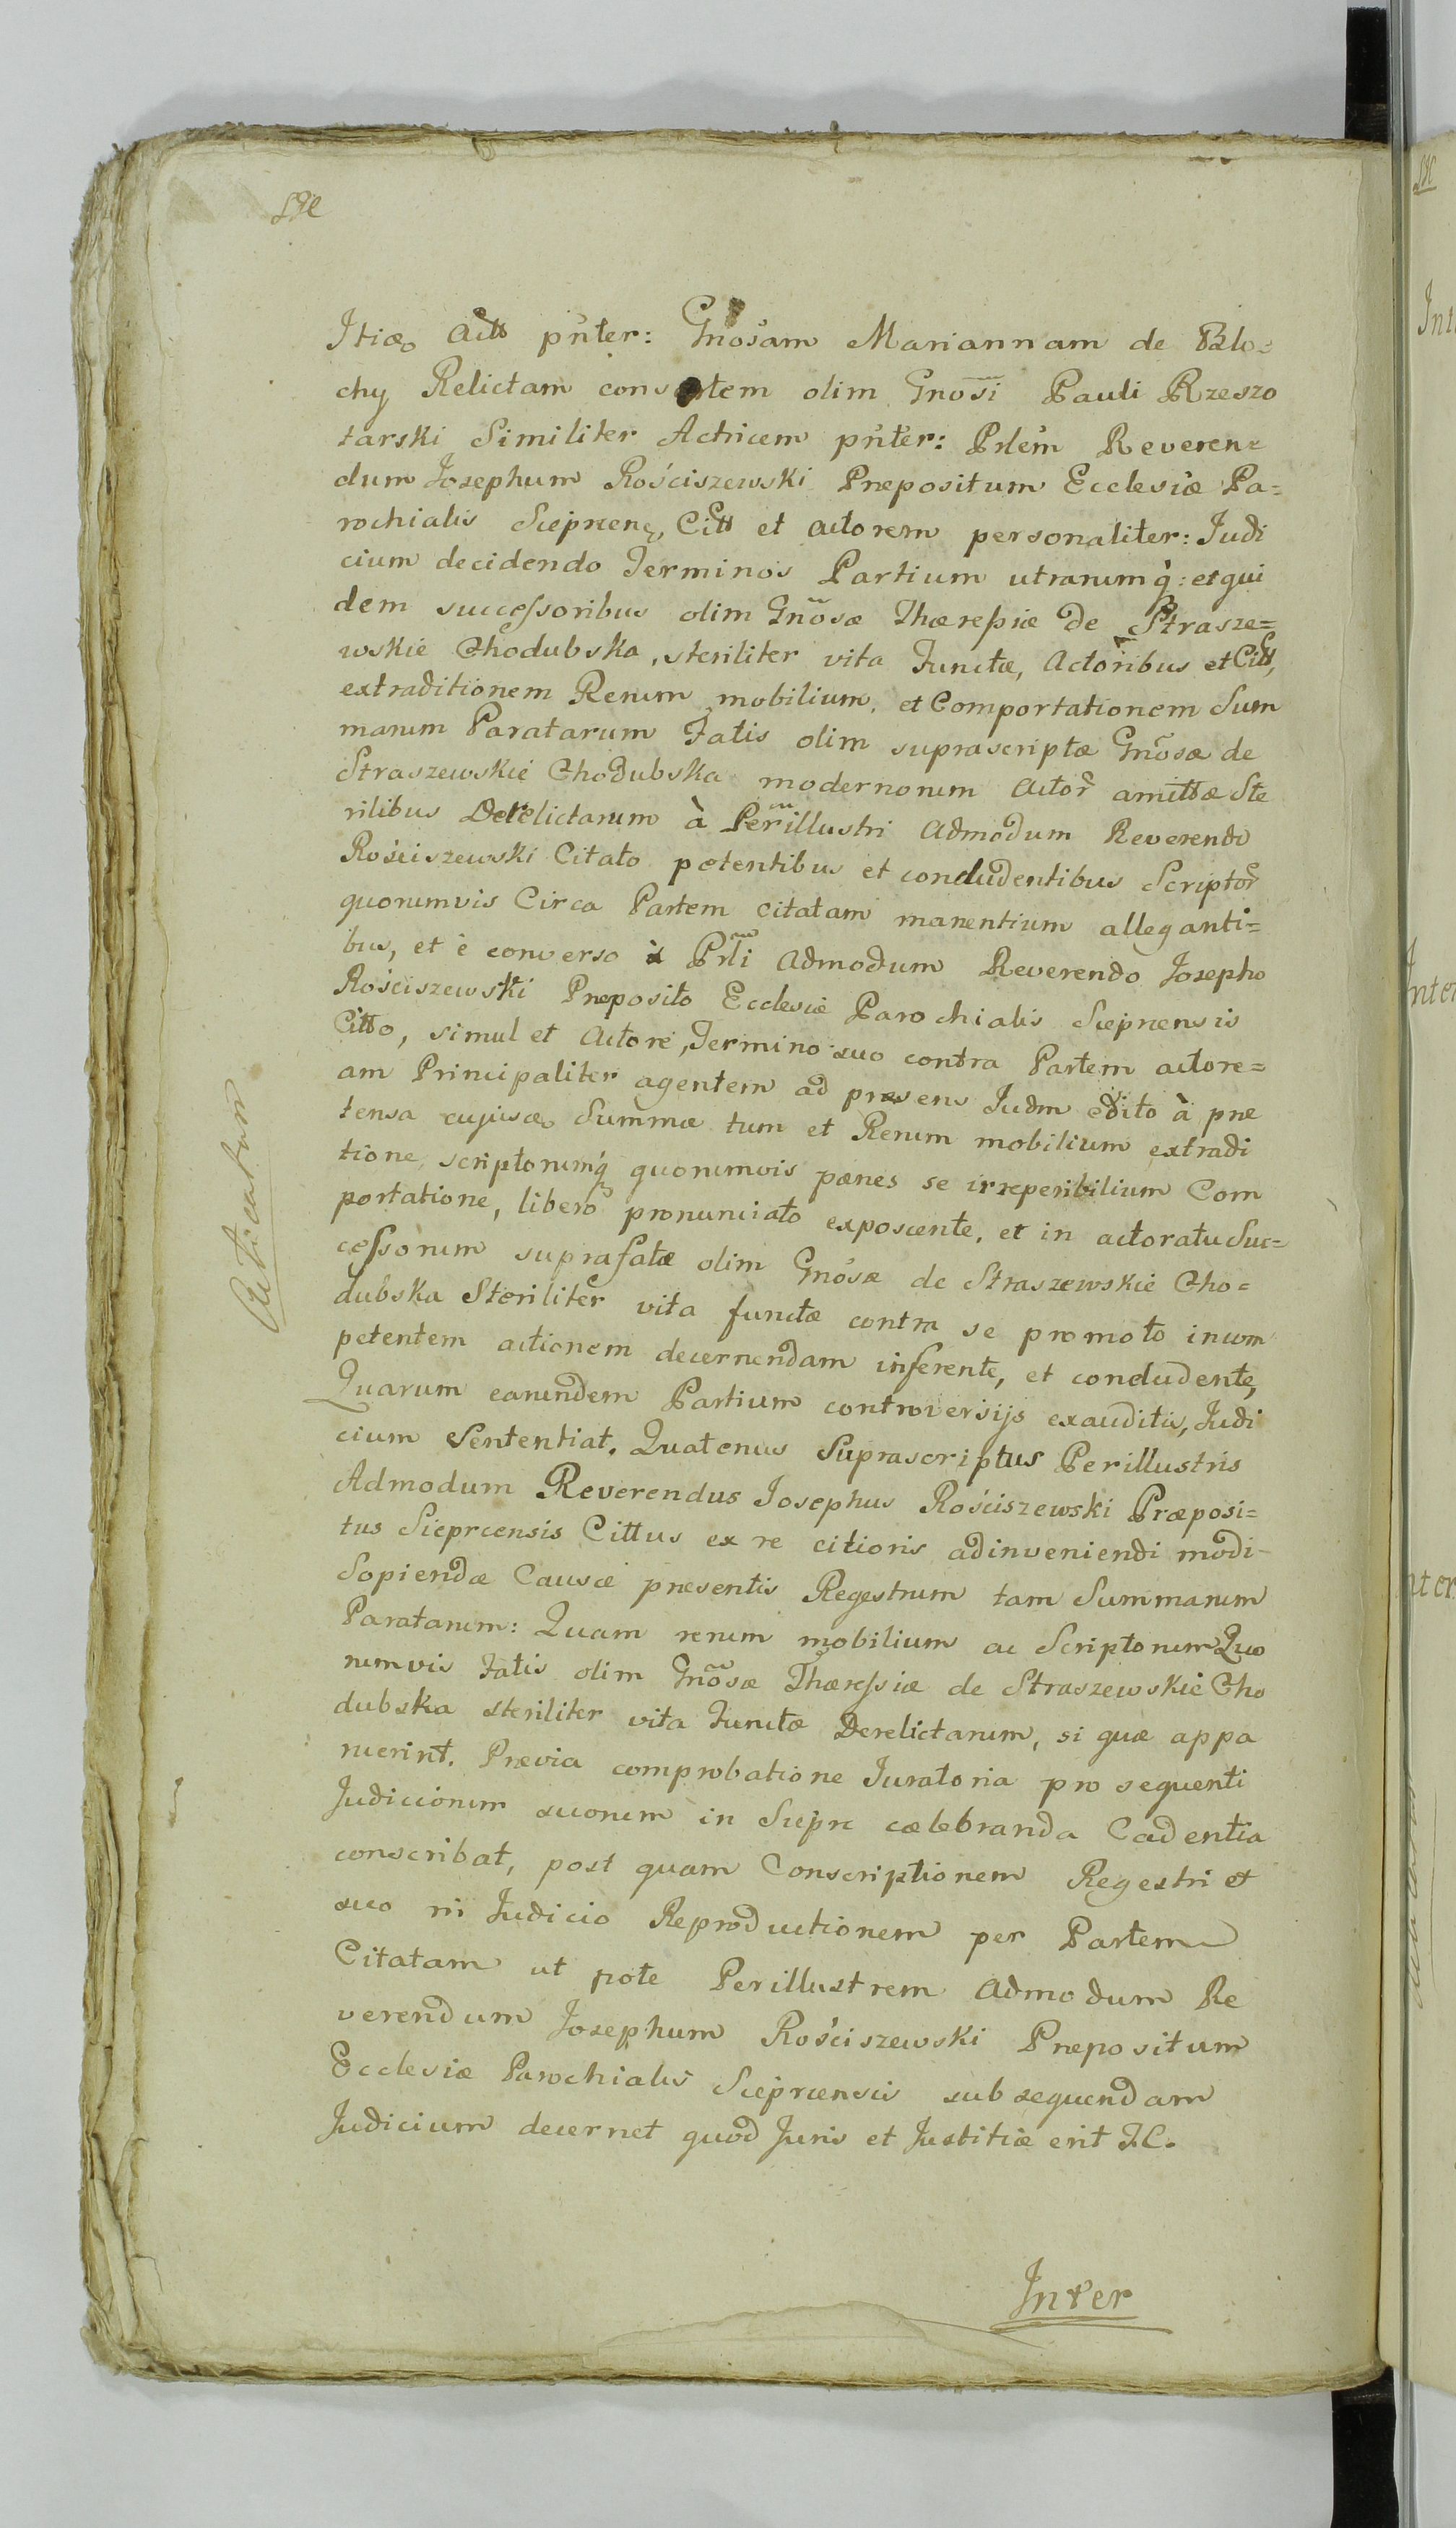 Itiae Actt pnter: Gnosam Mariannam de Blo=
chy Relictam consortem olim Gnosi Pauli Rzeszo
tarski Similiter Actricem pnter: Prlem Reveren=
dum Josephum Rościszewski Præpositum Ecclesiæ Pa=
rochialis Sieprcens, Citt et actorem personaliter: Judi
cium decidendo Terminos Partium utrarumq: et qui
dem successoribus olim Gnosæ Thæressiæ de Strasze=
wskie Chodubska, steriliter vita Functæ, Actoribus et Citt,
extraditionem Rerum mobilium, et Comportationem Sum
marum Paratarum Fatis olim suprascriptæ Gnosæ de
Straszewskie Chodubska modernorum Actor amittæ Ste
rilibus Derelictarum à Perillustri Admodum Reverendo
Rościszewski Citato petentibus et concludentibus Scriptor
quorumvis Circa Partem citatam manentium alleganti=
bus, et è converso à Prli Admodum Reverendo Josepho
Rościszewski Præposito Ecclesiæ Parochialis Sieprcensis
Citto, simul et Actore, Termino suo contra Partem actore=
am Principaliter agentem ad præsens Judm edito à præ
tensa cujusæ Summæ tum et Rerum mobilium extradi
tione, scriptorumq quorumvis pænes se irreperibilium Com
portatione, libero pronunciato exposcente, et in actoratu Suc=
cessorum suprafatæ olim Gnosæ de Straszewskie Cho=
dubska Steriliter vita functæ contra se promoto incom
petentem actionem decernendam inferente, et concludente,
Quarum earundem Partium controversijs exauditis, Judi
cium Sententiat. Quatenus Suprascriptus Perillustris
Admodum Reverendus Josephus Rościszewski Præposi=
tus Sieprcensis Cittus ex re citioris adinveniendi modi
Sopiendæ Causæ præsentis Regestrum tam Summarum
Paratarum: Quam rerum mobilium ac Scriptorum Quo
rumvis Fatis olim Gnosæ Thæressiæ de Straszewskie Cho
dubska steriliter vita Functæ Derelictarum, si quæ appa
ruerint. Prævia comprobatione Juratoria pro sequenti
Judiciorum suorum in Siepre cælebranda Cadentia
conscribat, post quam Conscriptionem Regestri et
suo in Judicio Reproductionem per Partem
Citatam ut pote Perillustrem Admodum Re
verendum Josephum Rościszewski Præpositum
Ecclesiæ Parochialis Sieprcensis subsequendam
Judicium decernet quod Juris et Justitiæ erit J.C.
Inter